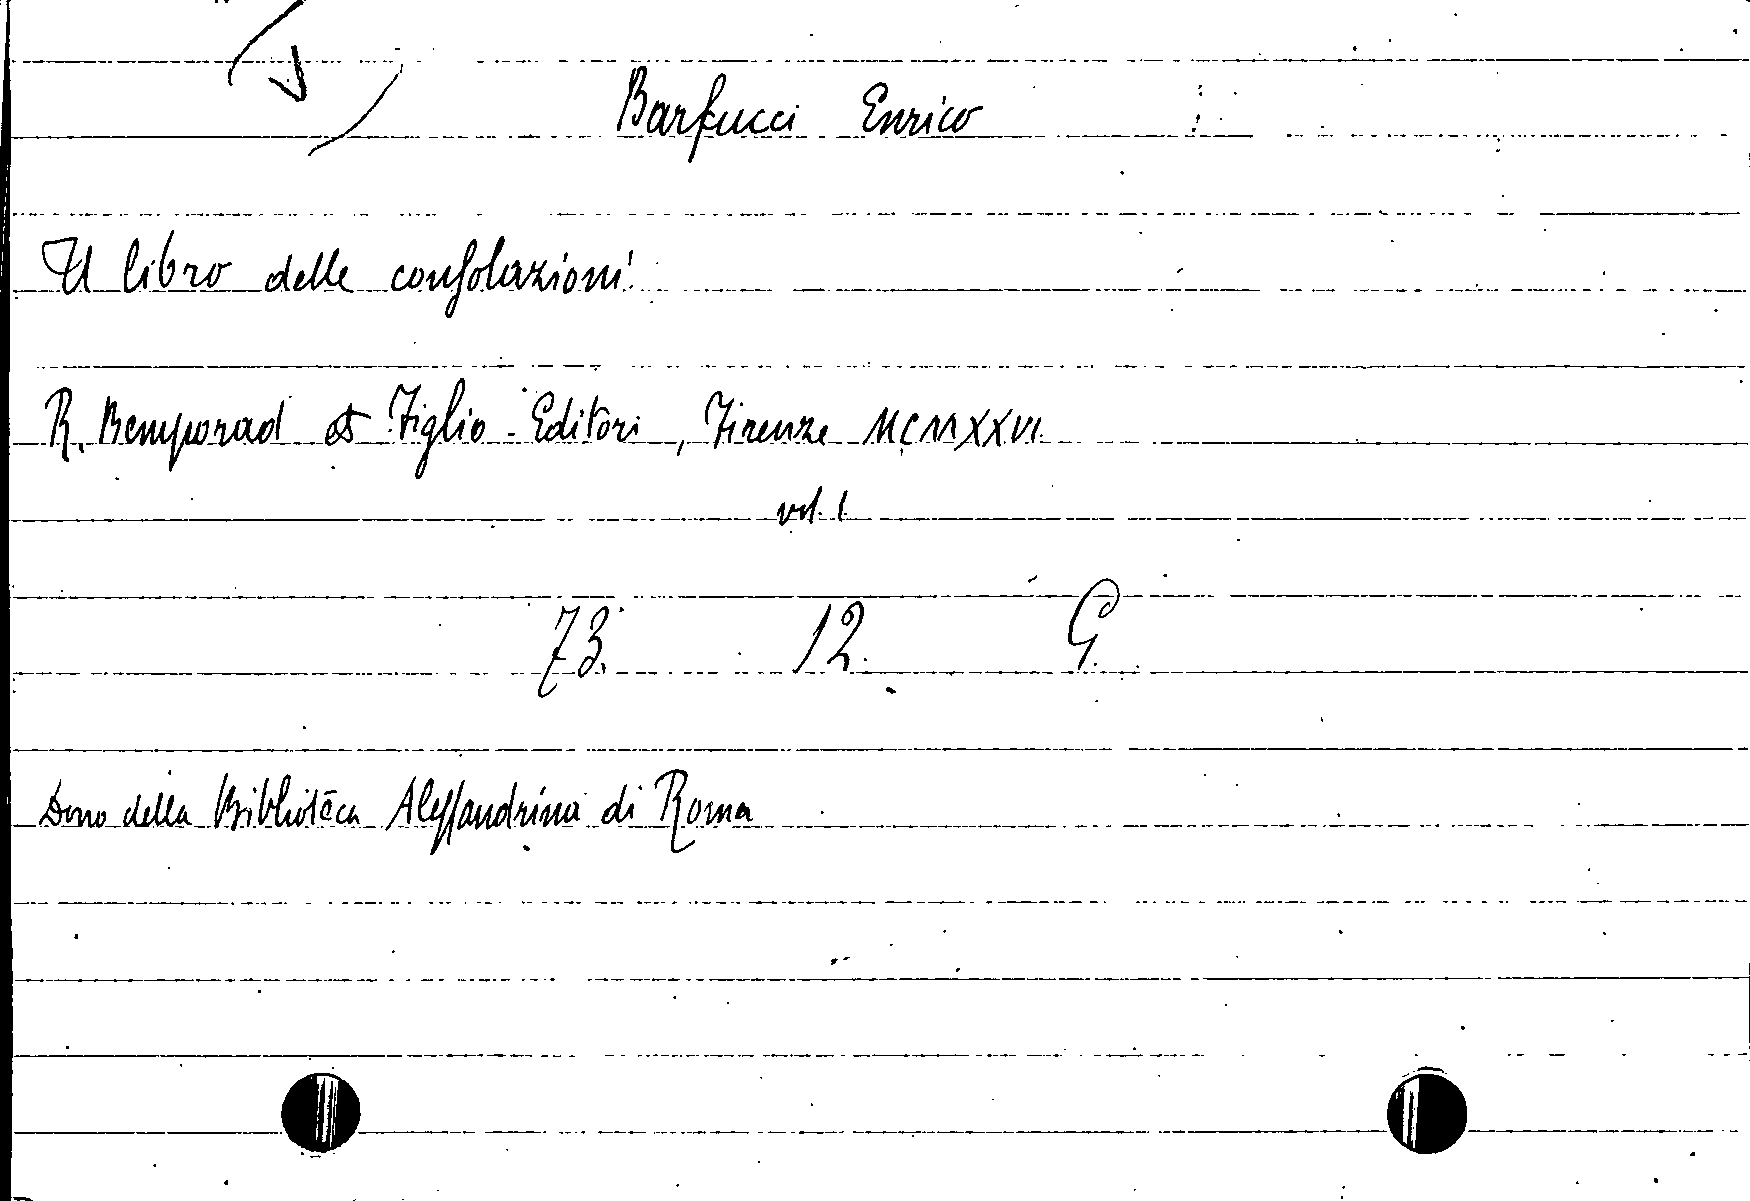 Barfucci Enrico
Il libro delle consolazioni
R. Bemporad & Figlio - Editori, Firenze MCMXXVI
vol. 1
73. 12. G.
Dono della Biblioteca Alessandrina di Roma